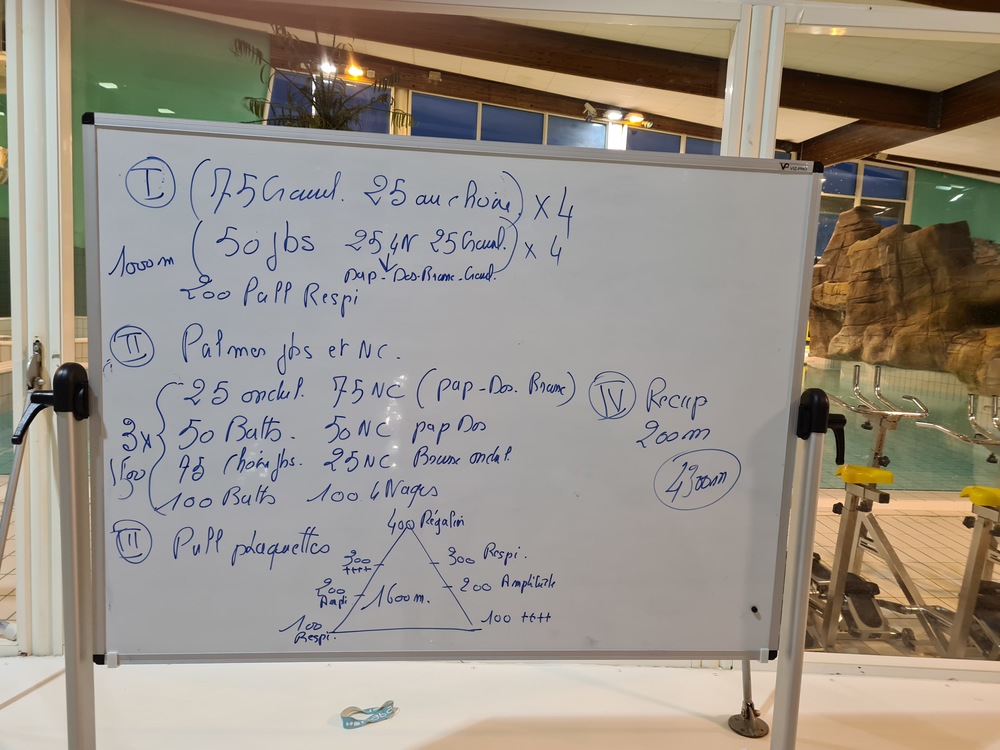 I (75 Craul. 25 au choix) x 4
1000m (50 jbs 25 4N 25 Craul.) x 4
pap-Dos-Brasse-Craul
200 Pull Respi
II Palmes jbs et NC.
3x 25 ondul. 75 NC (pap-Dos. Brasse)
50 Batts. 50 NC pap Dos
1500 75 Choix jbs. 25 NC Brasse ondul.
100 Batts 100 4 Nages
III Pull plaquettes
400 Régulier
300 ++++ 300 Respi.
200 Ampli 1600m. 200 Amplitude
100 Respi. 100 ++++
IV Recup
200m
4300m
VIZ-PRO